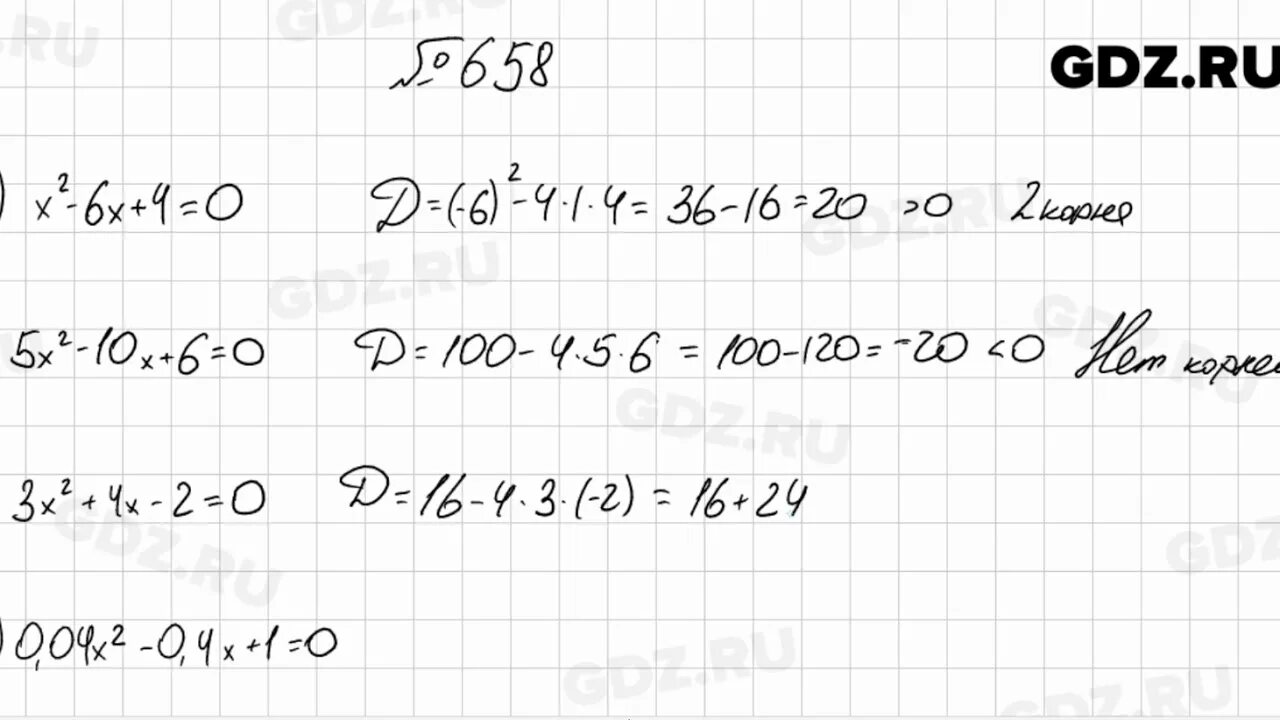 №658
GDZ.RU
) x²-6x+4=0 D=(-6)²-4·1·4= 36-16=20 >0 2 корня
5x²-10x+6=0 D=100-4·5·6 = 100-120=-20 <0 Нет корней
3x²+4x-2=0 D=16-4·3·(-2) = 16+24
) 0,04x²-0,4x+1=0